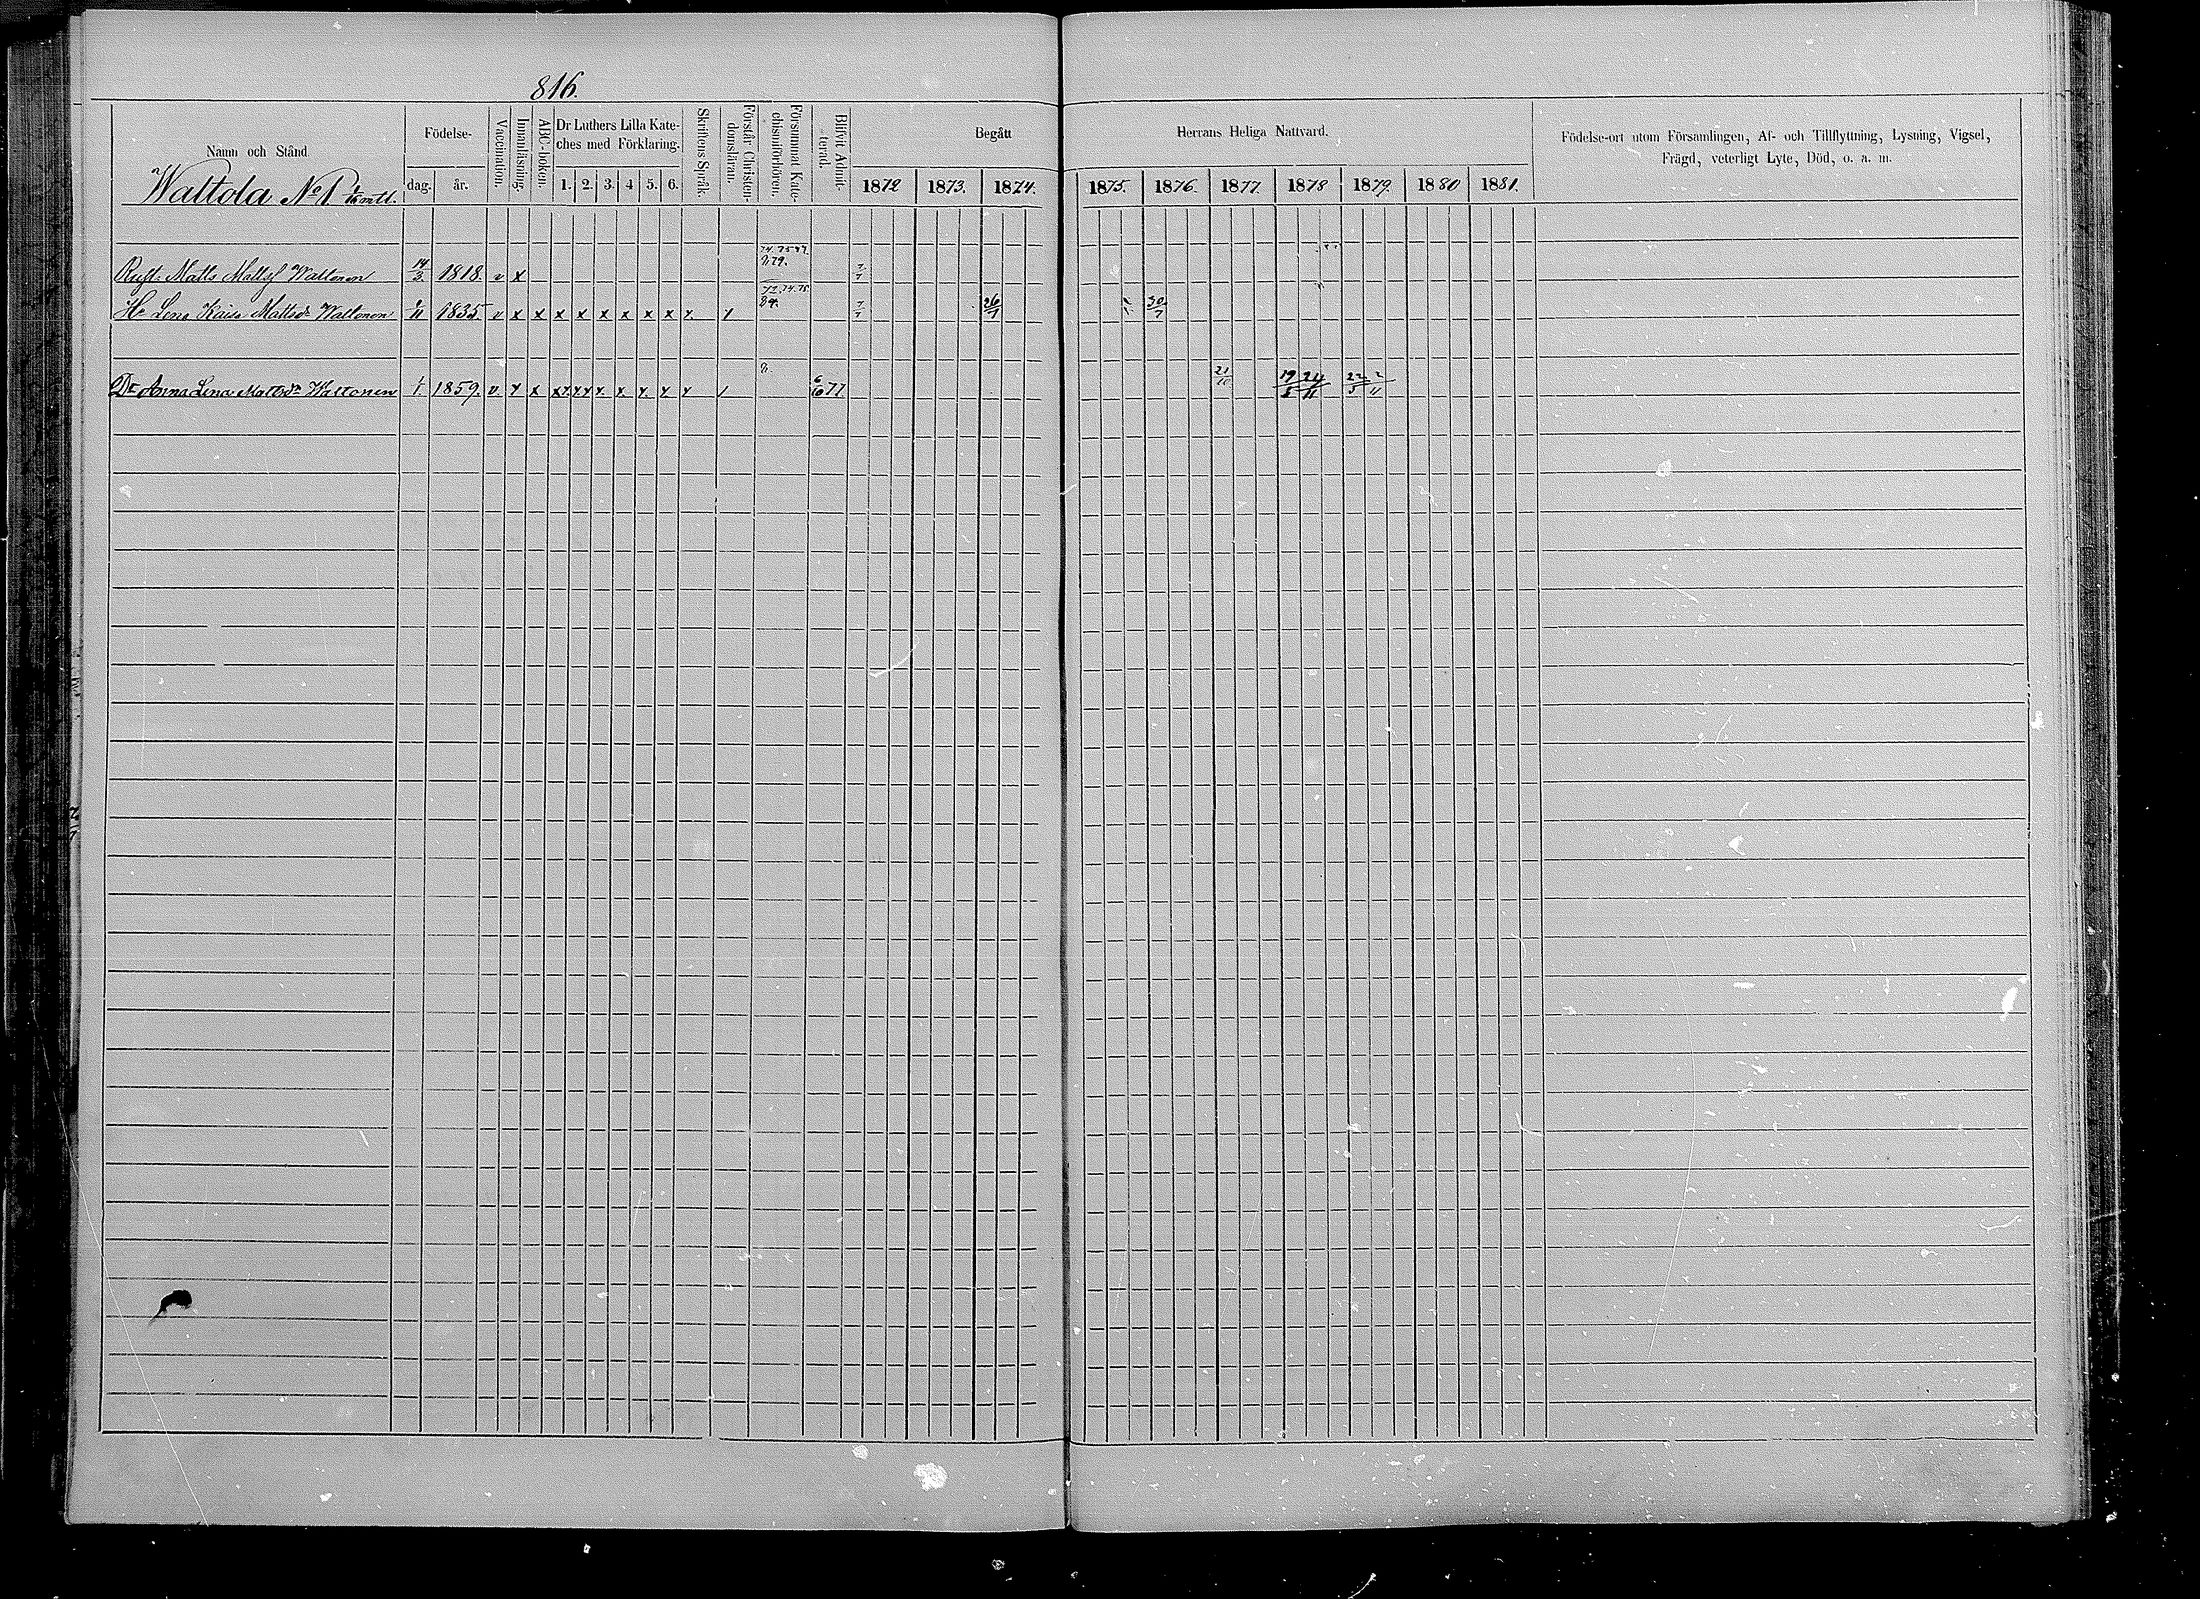 816.
Namn och Stånd.
Födelse-
dag. år.
Vaccination.
Innanläsning.
ABC-boken.
Dr Luthers Lilla Kate-
ches med Förklaring.
1. 2. 3. 4 5. 6.
Skriftens Språk.
Förstår Christen-
domsläran.
Försummat Kate-
chismiförhören.
Blifvit Admit-
terad.
Begått Herrans Heliga Nattvard.
1872 1873. 1874. 1875. 1876. 1877. 1878 1879. 1880 1881.
Födelse-ort utom Församlingen, Af- och Tillflyttning, Lysning, Vigsel,
Frägd, veterligt Lyte, Död, o. a. m.
Wattola No 1 mtl.
74. 75. 77.
79.
Matts Wattonen 14/3. 1818. v x 7/7
72. 74. 75.
Hu Lena Kaisa Mattsdr Wattonen 1835. v x x x x x x x x x. 1 7/7 26/7 30/7
Dr Anna Lena Mattsdr Wattonen 1/1. 1859. v. x x x x x x. x. x. x x 1 6/10 77. 21/10 19/5 24/11 22/5 2/11